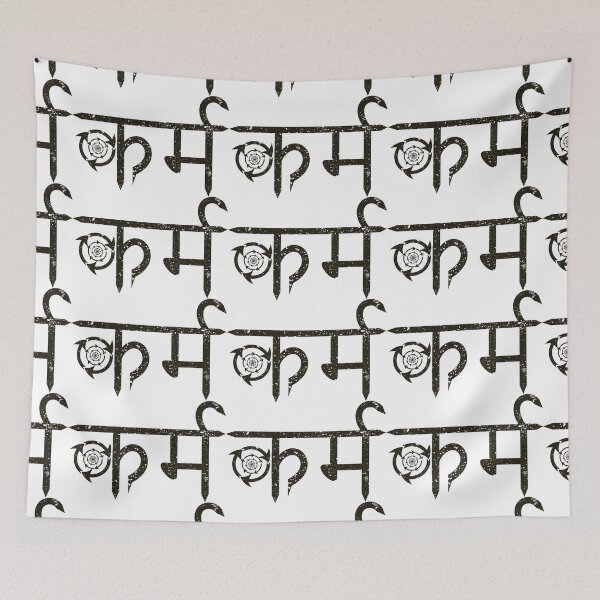 कर्म कर्म कर्म
कर्म कर्म कर्म
कर्म कर्म कर्म
कर्म कर्म कर्म